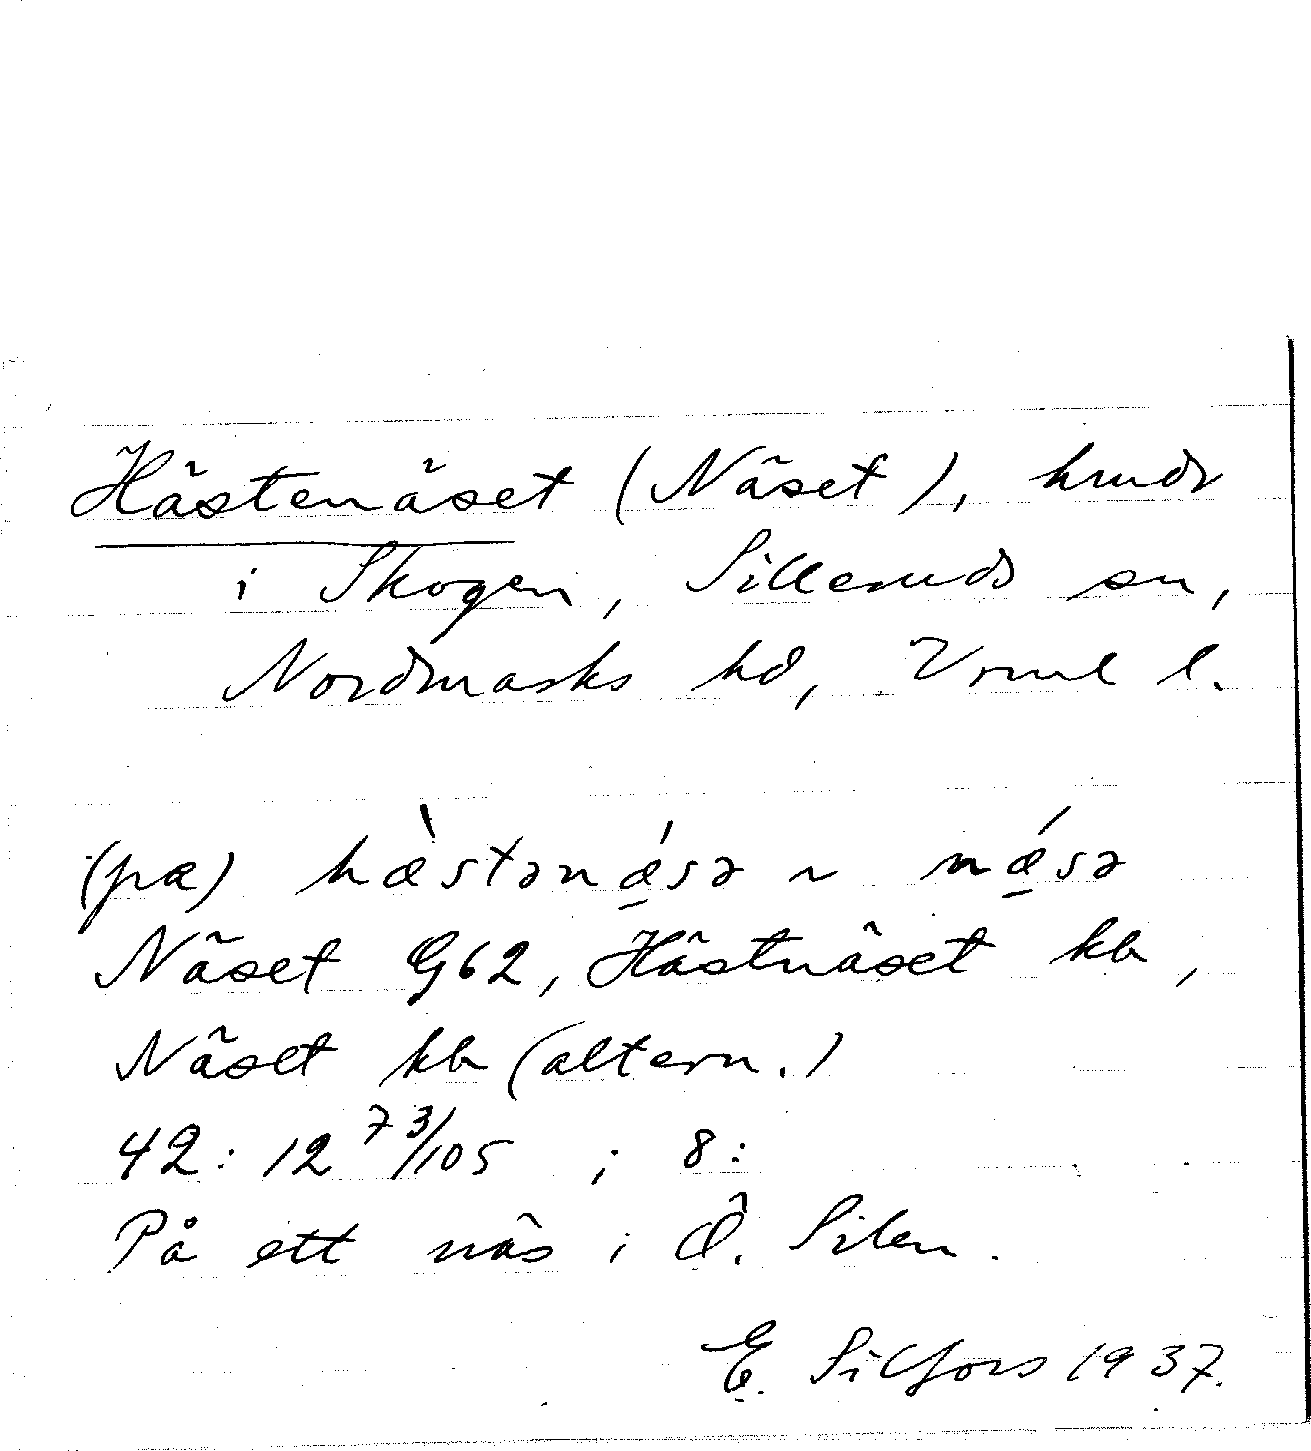 Hästenäset (Näset), hmdr
i Skogen, Silleruds sn,
Nordmarks hd, Vrml l.
(pæ) hæ̀stənǽ̠sə ~ nǽ̠sə
Näset G62, Hästnäset kb,
Näset kb (altern.)
42: 12 73/105 ; 8:
På ett näs i Ö. Silen.
E. Silfors 1937.